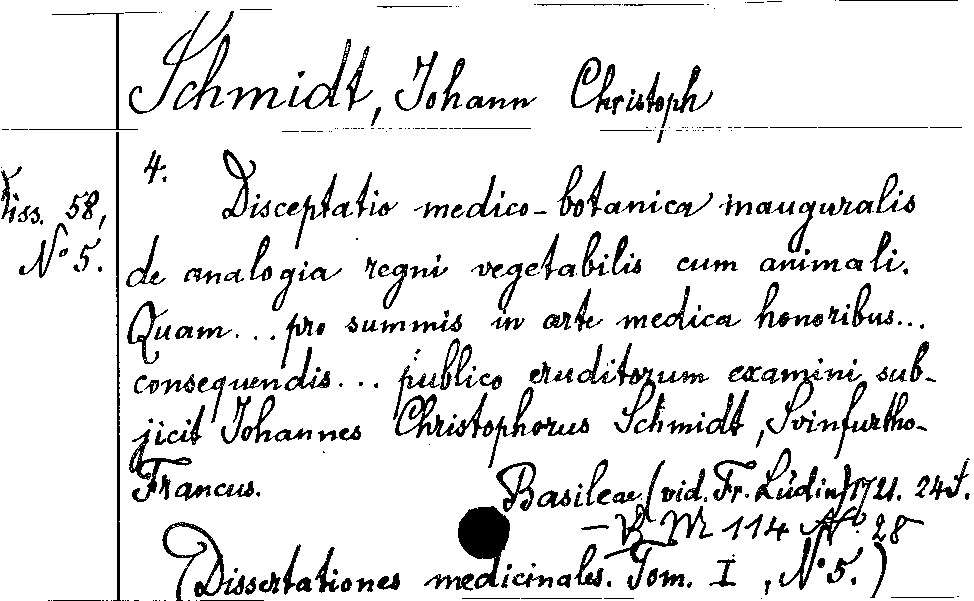 Schmidt, Johann Christoph
4.
Diss. 58,
No 5.
Disceptatio medico-botanica inauguralis
de analogia regni vegetabilis cum animali.
Quam... pro summis in arte medica honoribus...
consequendis... publico eruditorum examini sub-
jicit Johannes Christophorus Schmidt, Svinfurtho-
Francus.
Basileae (vid. Fr. Lüdin) 1721. 24 S.
- B M 114 No 28
(Dissertationes medicinales. Tom. I, No 5.)